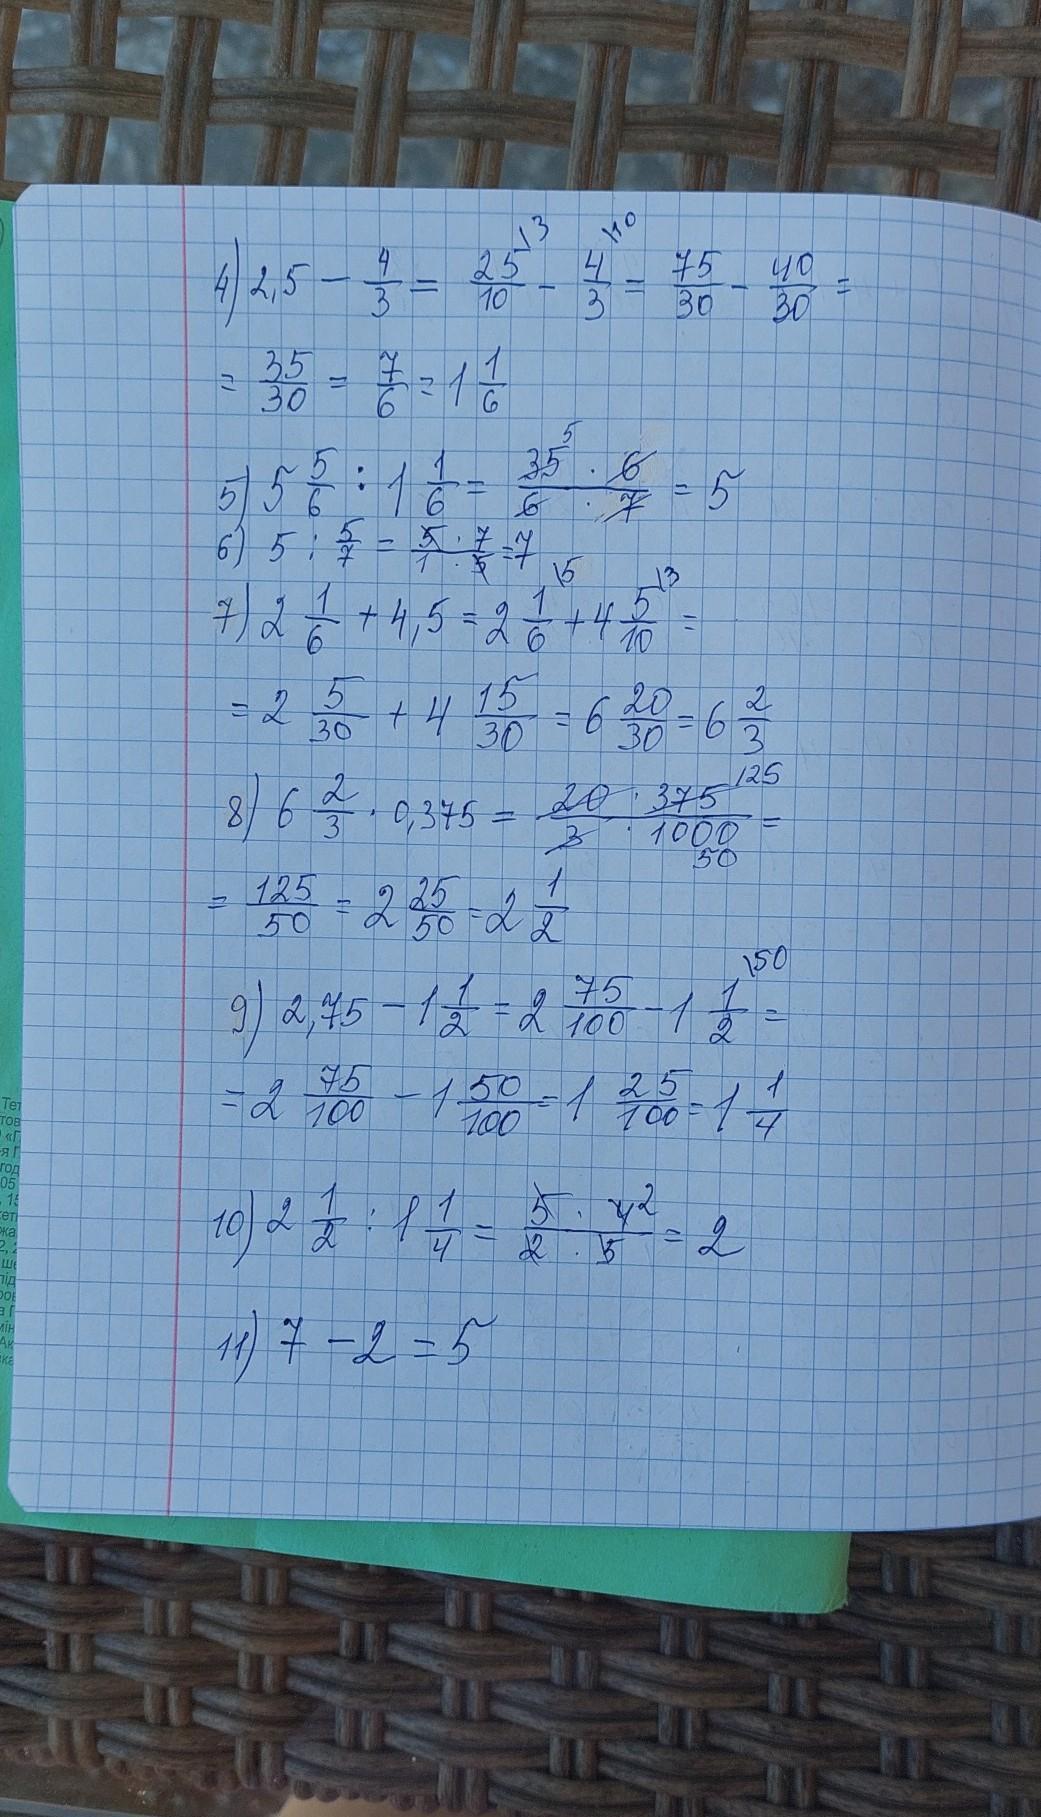 4) 2,5 - 4/3 = 25/10 \3 - 4/3 \10 = 75/30 - 40/30 =
= 35/30 = 7/6 = 1 1/6
5) 5 5/6 : 1 1/6 = 35 5 · 6 / 6 · 7 = 5
6) 5 : 5/7 = 5 · 7 / 1 · 5 = 7
7) 2 1/6 + 4,5 = 2 1/6 \5 + 4 5/10 \3 =
= 2 5/30 + 4 15/30 = 6 20/30 = 6 2/3
8) 6 2/3 · 0,375 = 20 · 375 125 / 3 · 1000 50 =
= 125/50 = 2 25/50 = 2 1/2
9) 2,75 - 1 1/2 = 2 75/100 - 1 1/2 \50 =
= 2 75/100 - 1 50/100 = 1 25/100 = 1 1/4
10) 2 1/2 : 1 1/4 = 5 · 4 2 / 2 · 5 = 2
11) 7 - 2 = 5